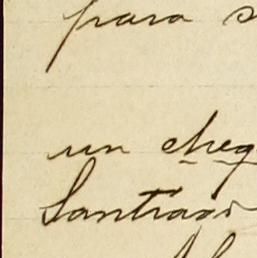 para s
un cheq
Santiago